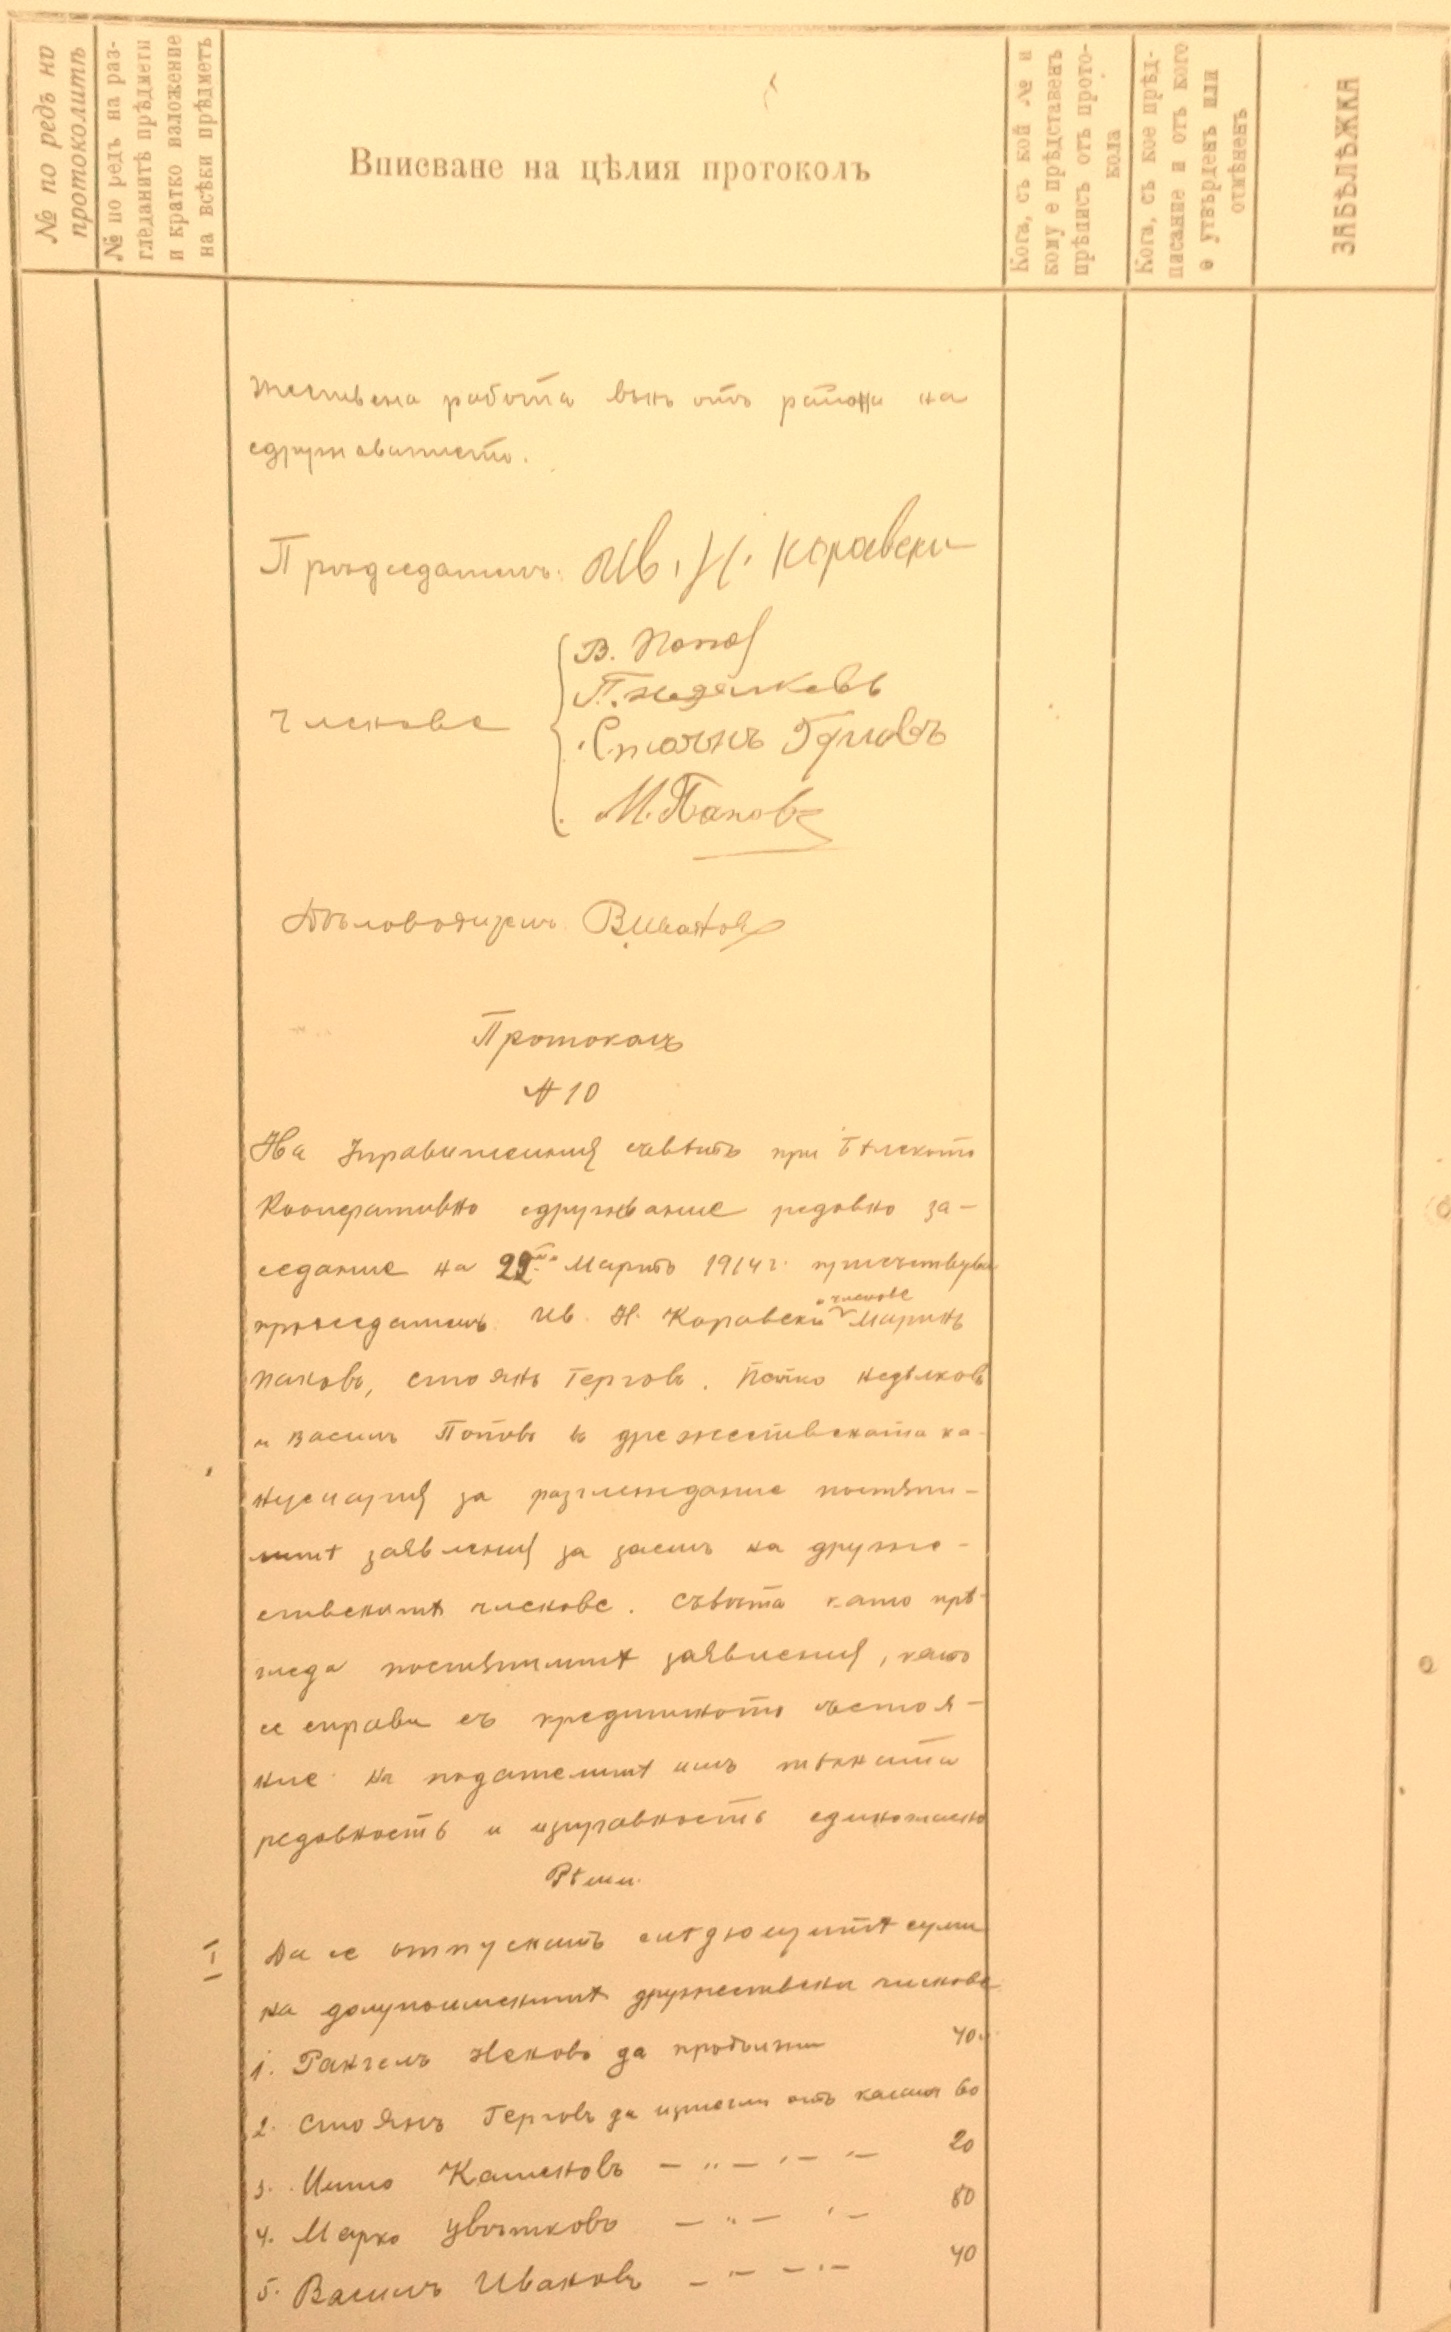 № по редъ на
протоколитѣ
№ по редъ на раз-
гледанитѣ прѣдмети
и кратко изложение
на всѣки прѣдметъ
Вписване на цѣлия протоколъ
Кога, съ кой № и
кому е прѣдставенъ
прѣписъ отъ прото-
кола
Кога, съ кое прѣд-
писание и отъ кого
е утвърденъ или
отмѣненъ
ЗАБѢЛѢЖКА
жествена работа вънъ отъ района на
сдружаванието.
Прѣдседателъ: Ив. Н. Каравски
В. Попов
П. Недялковъ
Членове
Стоянъ Герговъ
М. Пановъ
Дѣловодителъ В. Ивановъ
Протоколъ
№ 10
На Управителния съвѣтъ при Бѣлското
Кооперативно сдружвание редовно за-
седание на 22ий Мартъ 1914 г. присътвува
прѣдседателъ Ив. Н. Каравски и членове Маринъ
Пановъ, Стоянъ Герговъ. Петко Недѣлковъ
и Василъ Поповъ в дружествената ка-
нцелария за разглеждание постъпи-
литѣ заявления за заемъ на друже-
ственитѣ членове. Съвѣта като прѣ-
гледа постъпилитѣ заявления, като
се справи съ кредитното състоя-
ние на подателитѣ имъ тѣхната
редовность и изправность единогласно
Рѣши.
I
Да се отпуснатъ слѣдюущитѣ суми
на долупоименитѣ дружествени членове
1. Рангелъ Неновъ да продължи 40
2. Стоянъ Герговъ да изтегли отъ касата 60
3. Илия Каменовъ — „ — „ — 20
4. Марко Цвѣтковъ — „ — „ — 80
5. Василъ Ивановъ — „ — „ — 40